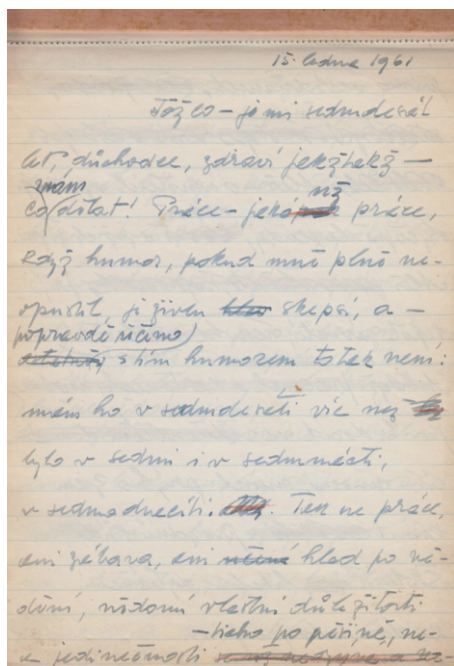 15. ledna 1961
Tož co – je mi sedmdesát
let, důchodce, zdraví jakžtakž –
znám
co dělat! Práce – jaká už práce,
když humor, pokud mně plně ne-
opustil, je živen skepsí, a –
popravdě řečeno
s tím humorem to tak není:
mám ho v sedmdesáti víc než
bylo v sedmi i v sedmnácti,
v sedmadvaceti. Ten ne práce,
ani zábava, ani hlad po vě-
dění, vědomí vlastní důležitosti
po pěšině, ne-
a jedinečnosti